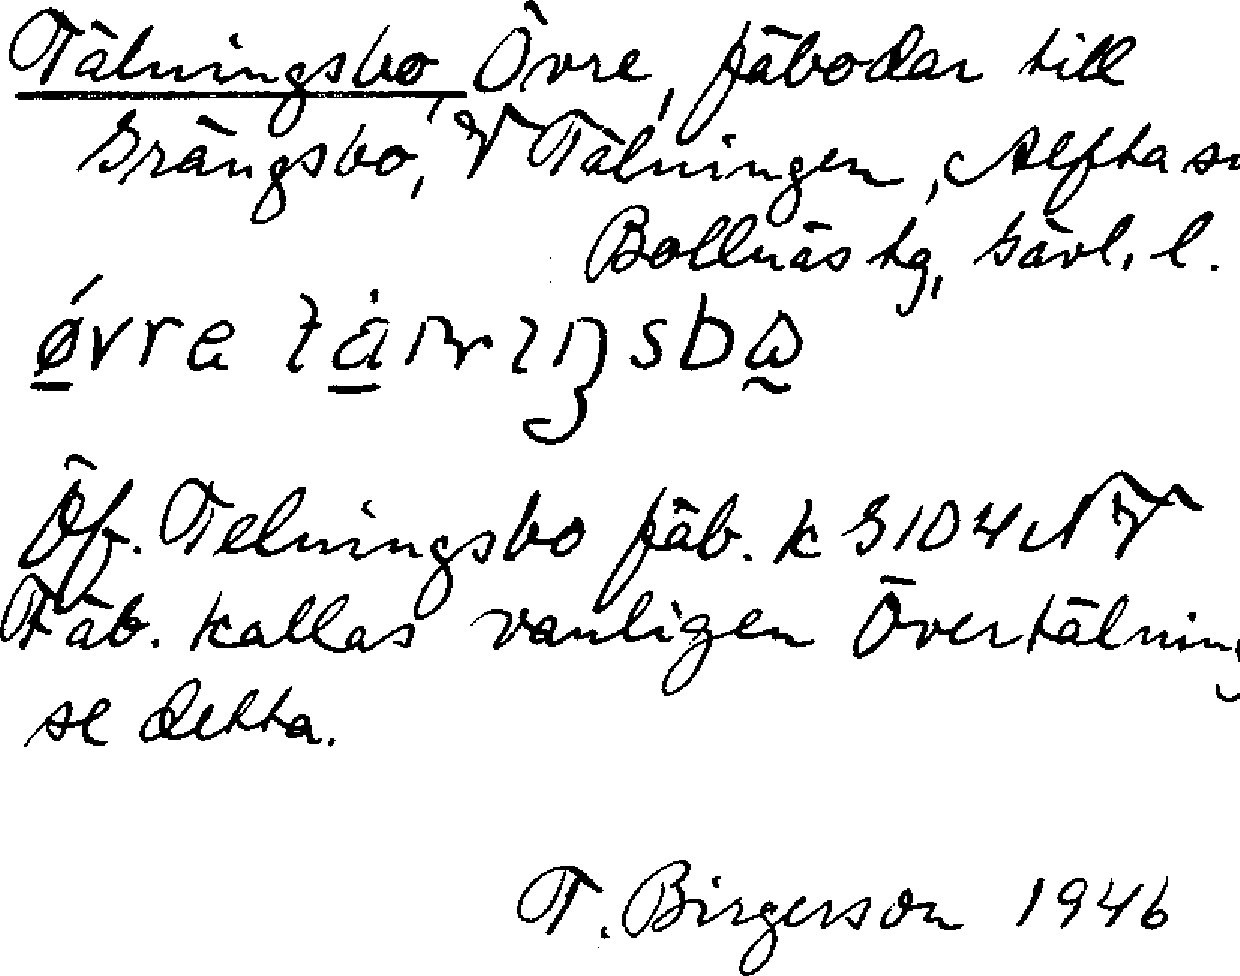 Tälningsbo, Övre, fäbodar till
Grängsbo, V Tälningen, Alfta sn
Bollnäs tg, Gävl. l.
Öf. Telningsbo fäb. k G104 NV
Fäb. kallas vanligen Övertälning
se detta.
T. Birgerson 1946